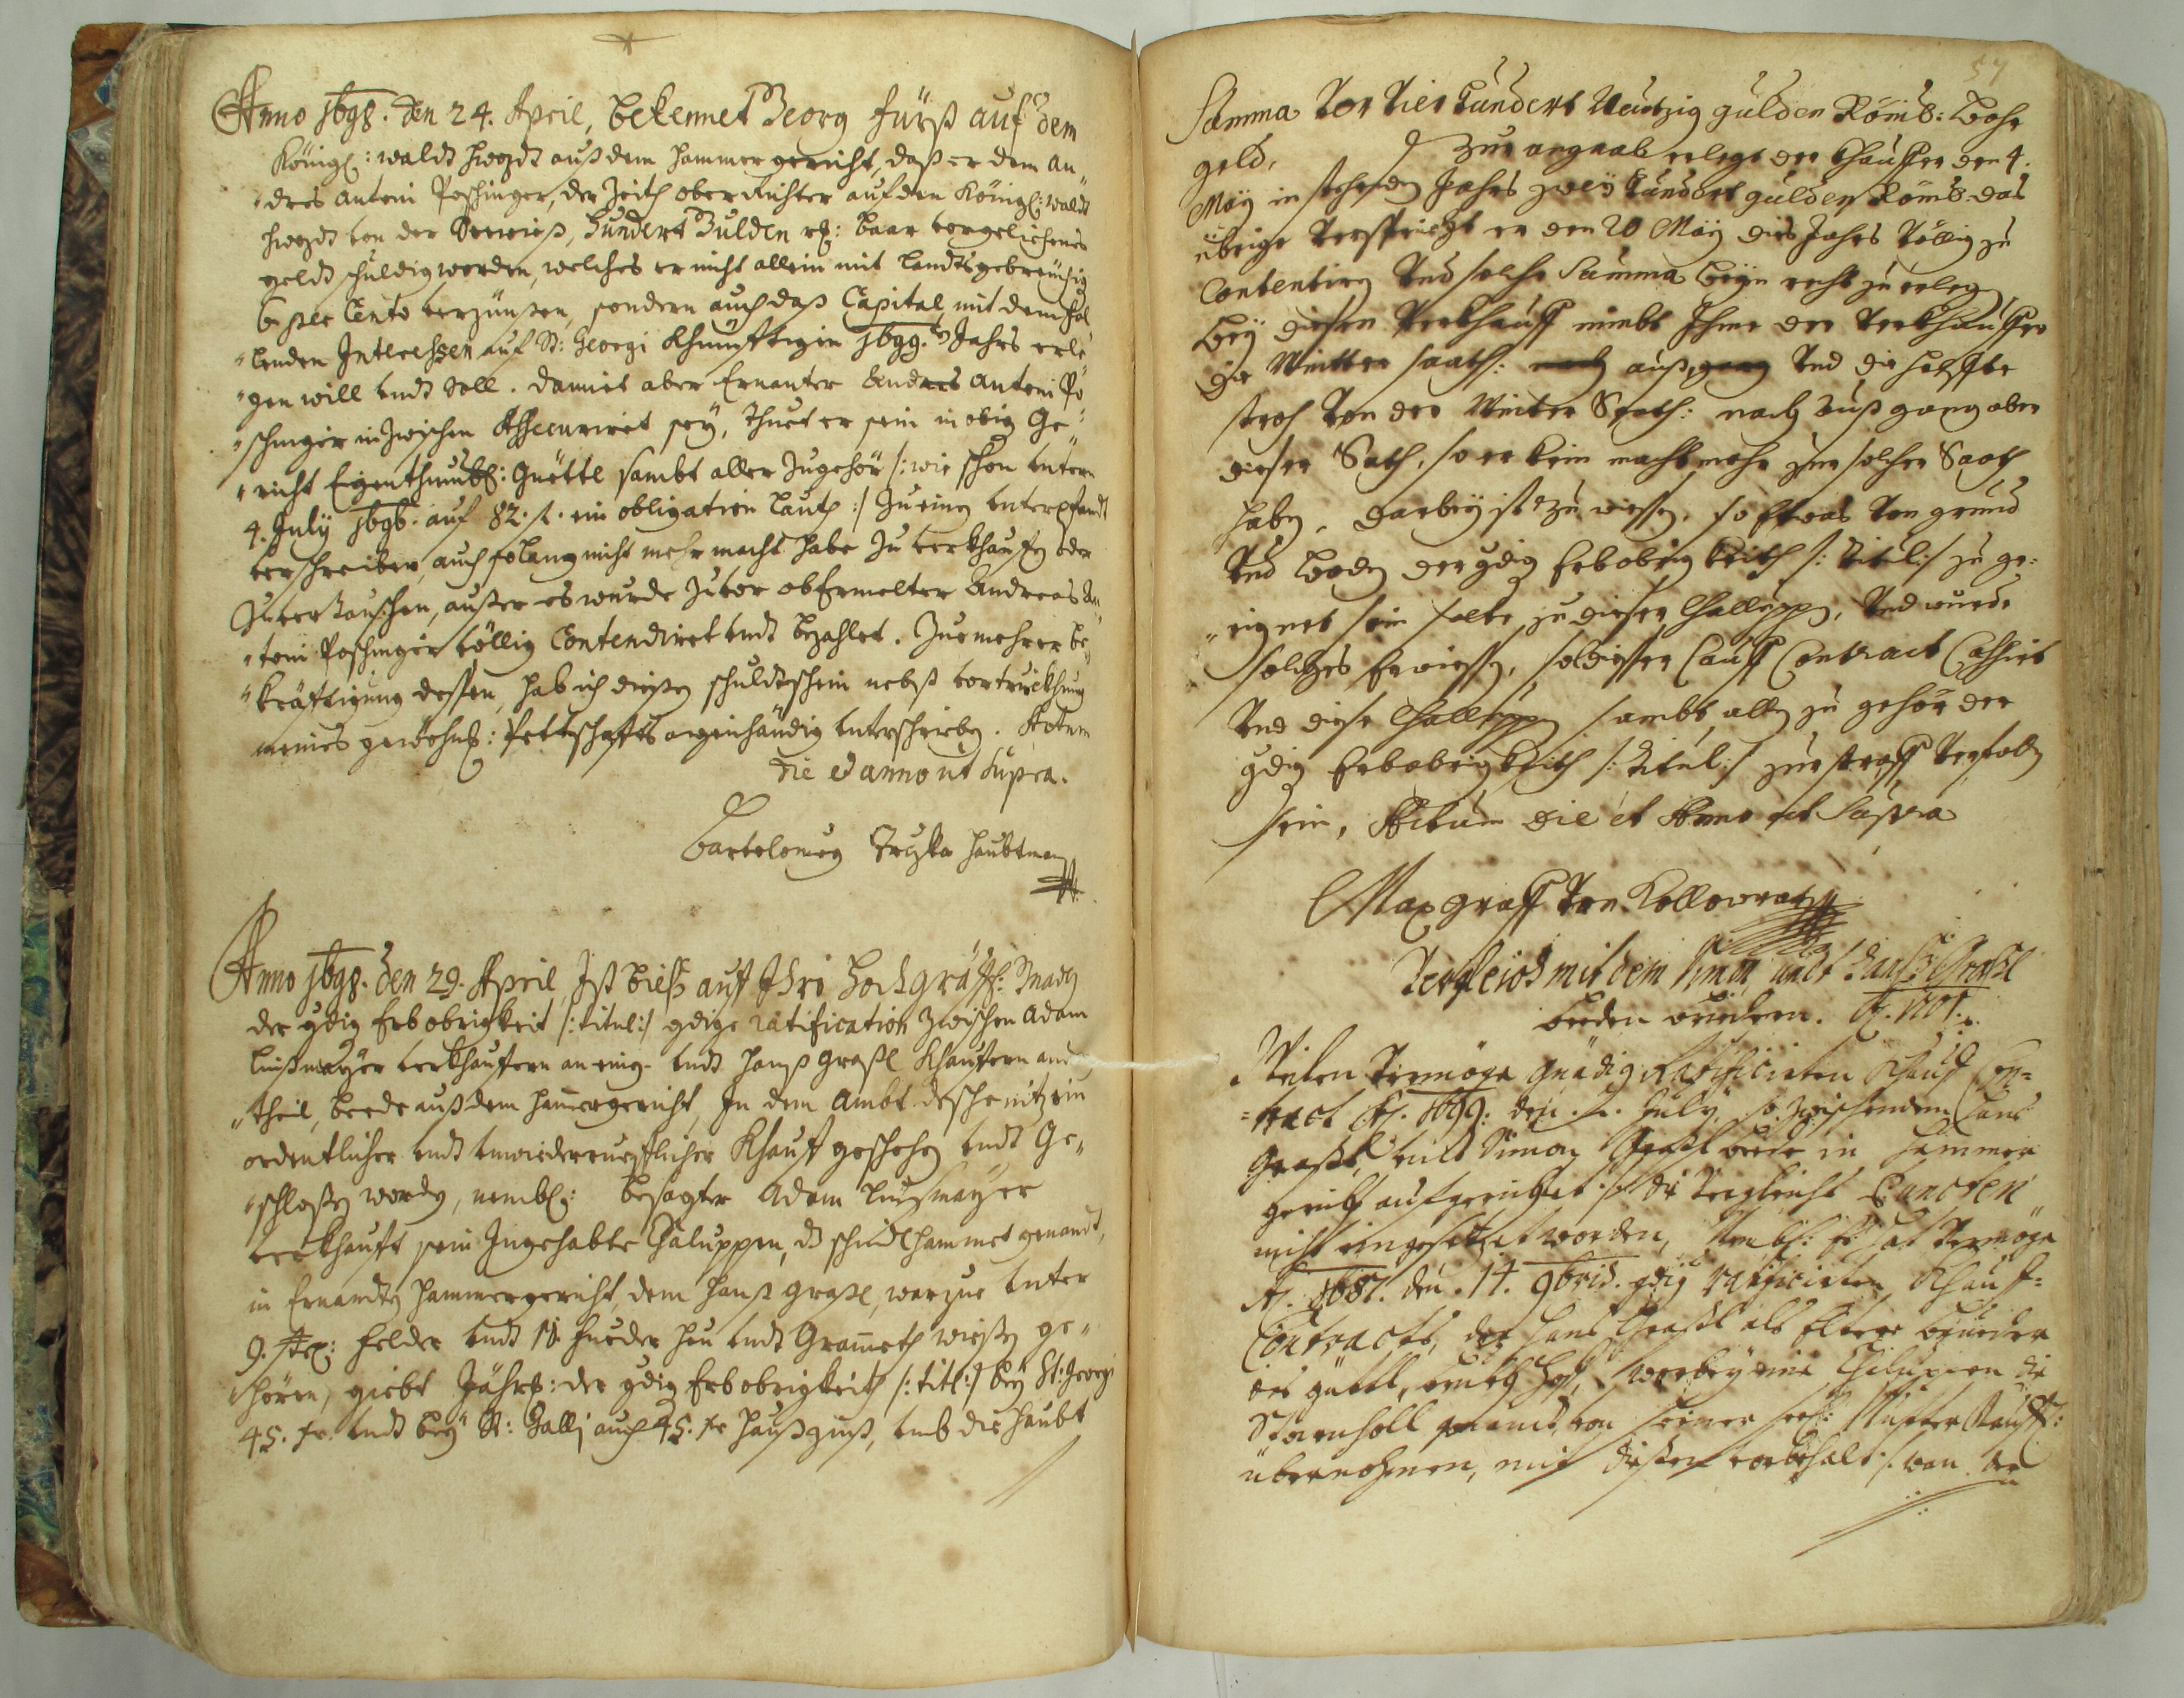 Anno j698. den 24. April, bekennet Georg Fürst auf dem
Königl: waldt hwozdt auß dem hammer gericht, daß er dem An„
„dres Antoni Poschinger, der Zeith ober Richter auf den Königl: waldt
hwozdt von der Seewieß, Hundert Gulden rh: baar vorgelichenes
geldt schuldig worden, welches er nicht allein mit landtsgebreüchig
6 per Cento verzünßen, sondern auch daß Capital, mit dem fal„
„lenden Interessen auf St: Georgi Khünfftigen j699.ten Jahrs erle„
„gen will undt soll. damit aber Ernanter Andres Antoni Po„
„schinger inzwischen Assecuriret sey, thuet er sein in obig Ge„
„richt Eigenthumbl: Güettl sambt aller Zugehör /: wie schon untern
4. July j696. auf 82. f. ein obligation lauth :/ Zu einen unterpfandt
verschreiben, auch solang nicht mehr macht habe zu verkhauffen oder
zu vertauschen, außer es wurde zuvor obErmelter Andreas An„
„toni Poschinger völlig Contendiret undt bezahlet. Zur mehrer be„
„kräftigung dessen, hab ich dießen schuldtschein nebst vortruckhung
meines gewöhnl: Pettschafts aigenhändig unterschrieben. Actum
die et anno ut supra.
Bartolomeg haubtman
Anno j698. den 29. April, Ist bieß auf Ihro Hochgräffl: Gnaden
der gdig Erbobrigkeit /: titul :/ gdige ratification zwischen Adam
verkhauffern an einen- undt Hanß Graßl Khauffern andern
„theil, beede auß dem hamergericht, In dem Ambt deschenitz ein
ordentlicher undt unwiederruefflicher Khauff geschehen undt Ge„
„schloßen worden, nembl: besagter Adam
verkhauft sein Ingehabte Chaluppen, d. schmidlhammet genandt,
in Ernandten hammergericht, dem Hanß Graßl, warzue unter
9. Felder undt 18 fueder heu undt Grameth wießen ge„
„hören, giebt Jährl: der gdig Erbobrigkeith /: titl: :/ bey St: Georgi
45. xr. undt bey St: Galli auch 45. xr haußzinß, umb die haubt
57
Summa Vor Vier hundert Neutzig gulden Römis: Bahr
geld, zur angaab erlegt der Khauffer den 4.
May in stehenden Jahrs zwey hundert gulden Römis. das
übrige verspricht er den 20 May dies Jahrs völlig zu
Contentiren Vnd solche Summa
Bey diesen Verkhauff nimbt Ihme der Verkhauffer
die Winter saath: Vnd die helffte
stroh Von der Winter Saath: nach außgang aber
dieser Sath, so er kein macht mehr zur solcher Saath
haben. Darbey ist zu wissen, so Etwas Von grund
Vnd boden der gdig Erbobrigkeith /: titul :/ zu ge„
„eignet sein solte zu dieser Challuppen, Vnd wurde
solches Erwiesen, soll dieser Kauff Contract Cassirt
Vnd diese Challuppen sambt allen zu gehör der
gdig Erbobrigkheith /: titul :/ zur straff Verfallen
sein, Actum Die et Anno ut Supra
Max graff Von Kollowrath
Vergleich mit dem Simon undt Hanß Graßl
beeden brüedern. A. 1701.
Neben Vermöge gnädig Ratificirten Khauf Con=
=tract A. 1699. den 2. July, so zwischen dem Hans
Graßl, undt Simon Graßl beede in Hammer
gericht aufgerichtet, die Vergleichs Puncten
nicht eingesetzet worden, Nembl: Es hat Vermöge
A. 1687. den 14. 9bris. gdig ratificirten Khauf=
Contracts, der Hans Graßl als Elterer brueder
das güettl, worbey eine Chaluppen die
genandt, von seiner seel: Mutter Kauff:
übernohmen, mit diesen vorbehalt :/ wan der